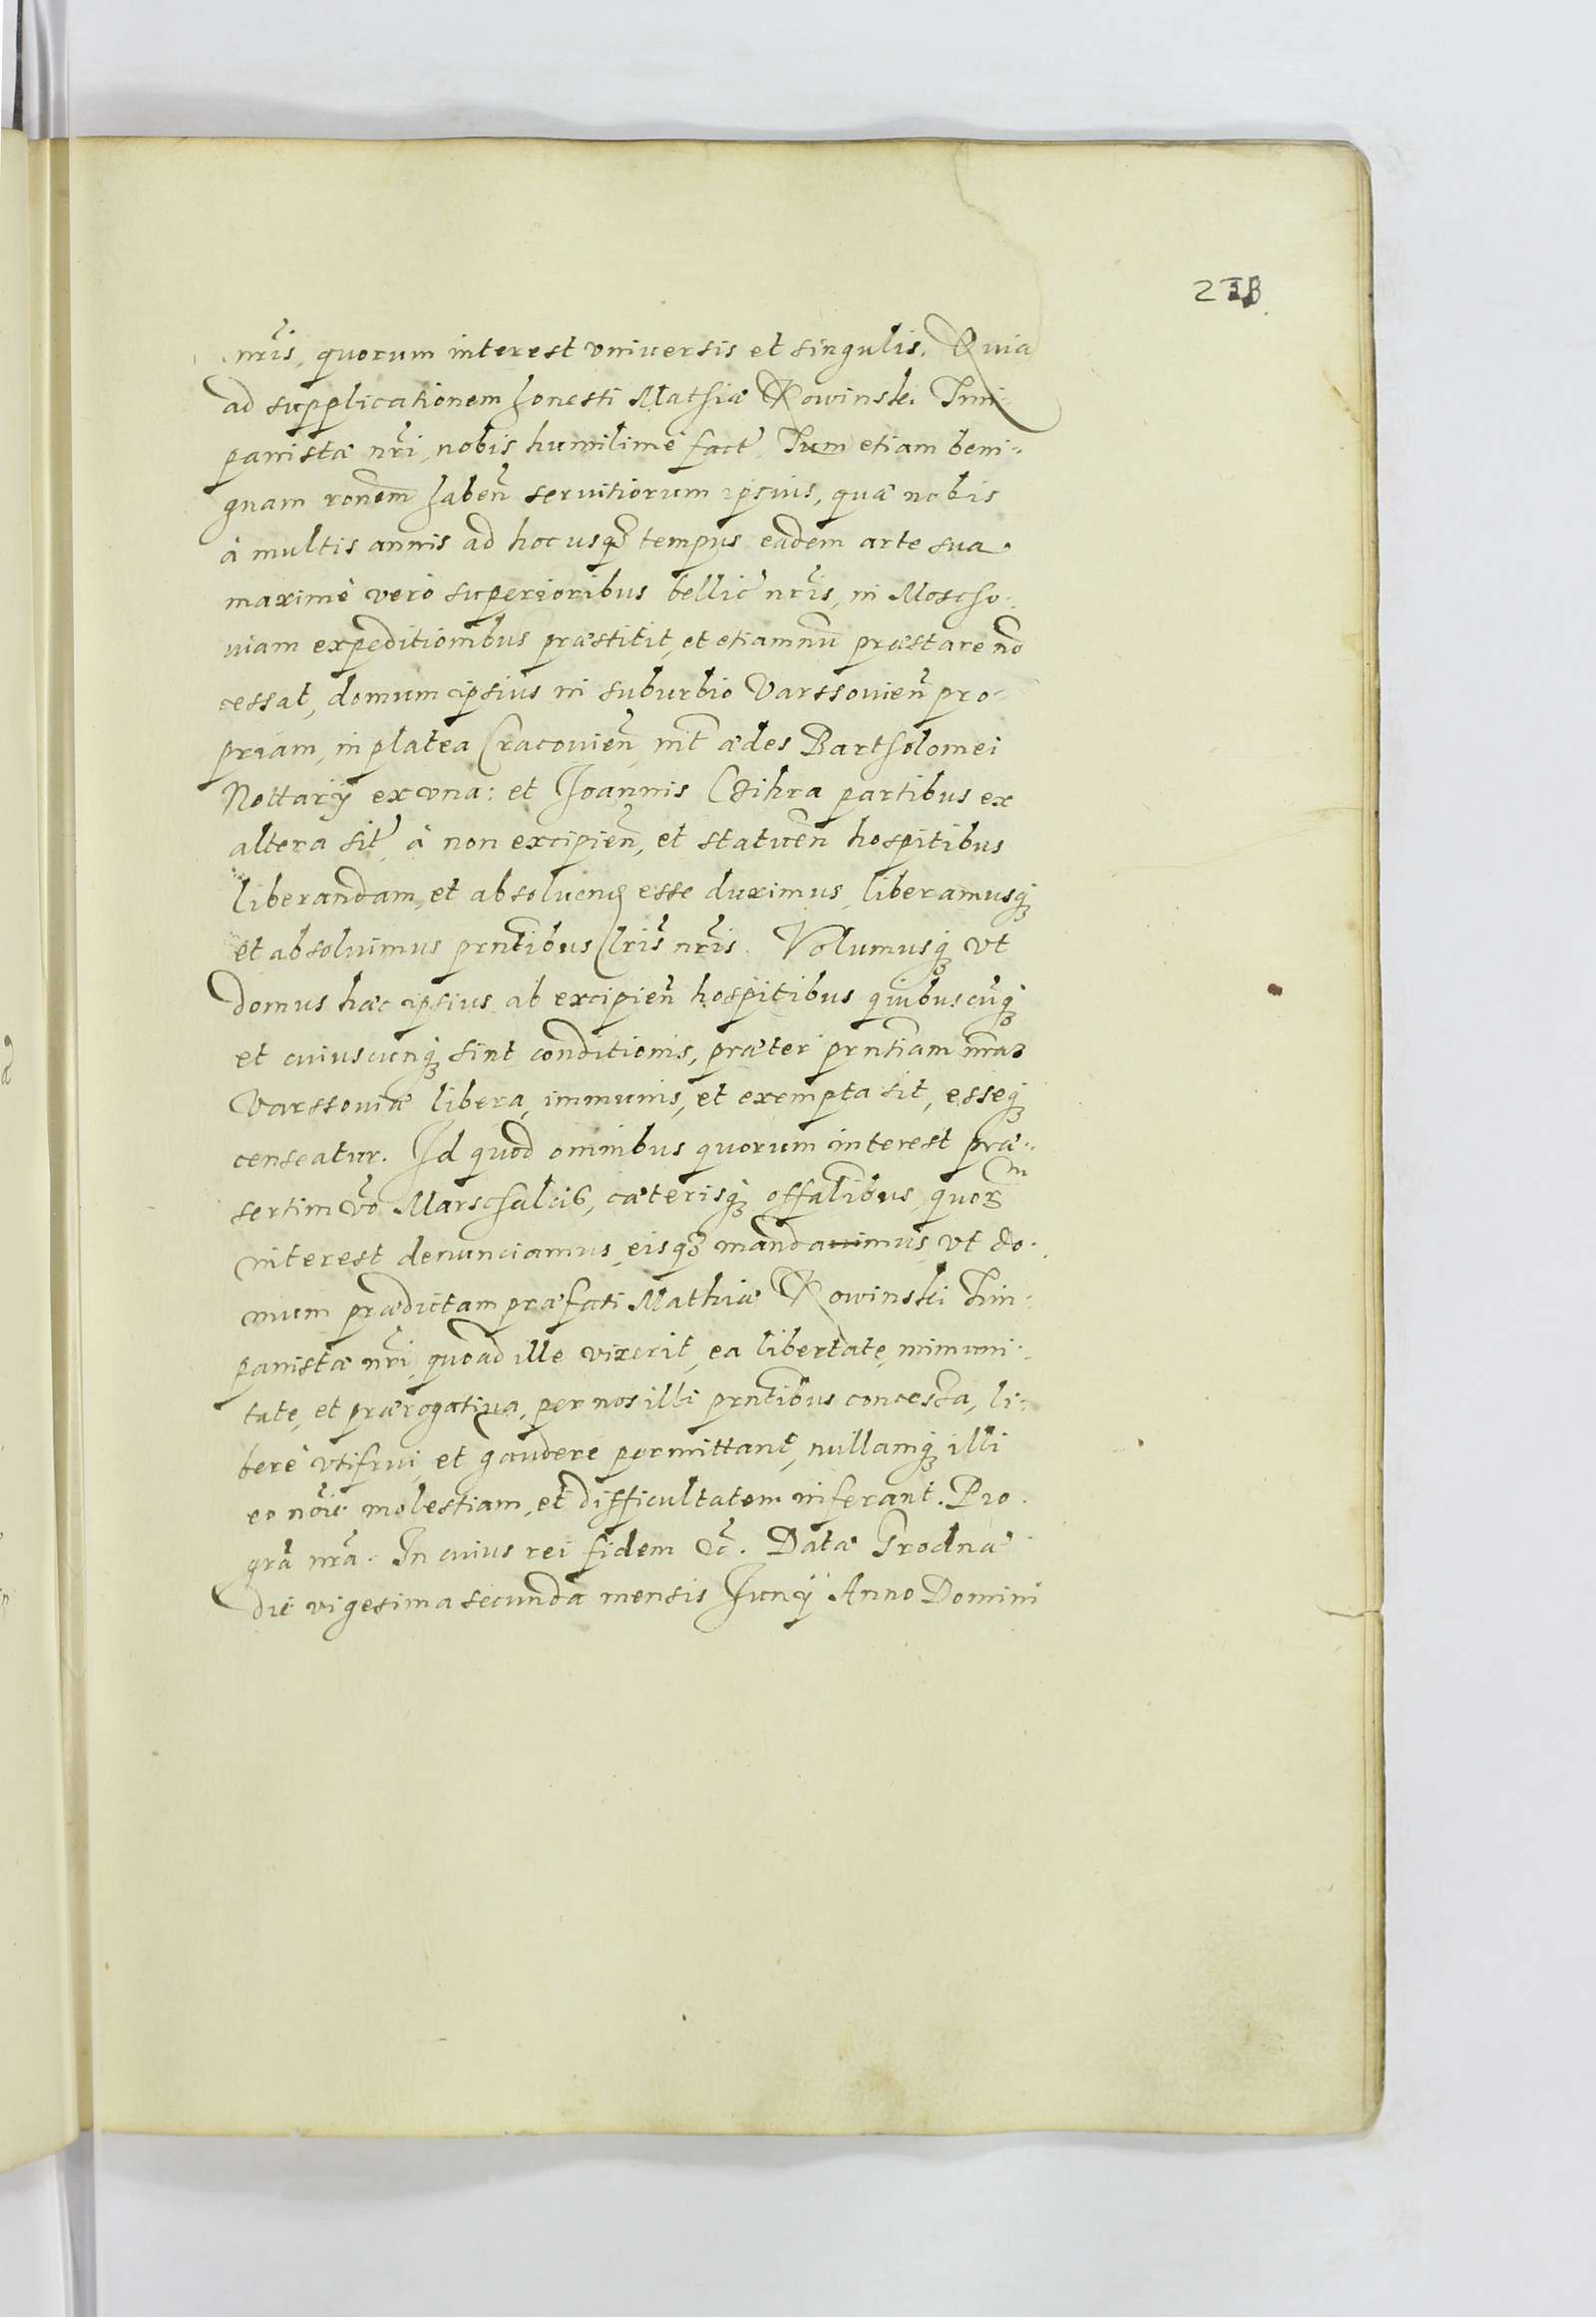 238.
nr̃is, quorum interest vniuersis et singulis. Quia
ad supplicationem honesti Mathiæ Rowinski Tim-
panistæ nr̃i, nobis humilime fact Tum etiam beni-
gnam ronem̃ habeñ seruitiorum ipsius, quæ nobis
à multis annis ad hoc usq3 tempus eadem arte sua
maximè verò superioribus bellic nr̃is, in Moscho-
uiam expeditionibus præstitit, et etiamnũ præstare nõ
cessat, domum ipsius in suburbio Varssouieñ pro-
priam, in platea Cracouieñ, int̃ ædes Bartholomei
Nottarij ex vna: et Joannis partibus ex
altera sit, à non excipieñ, et statueñ hospitibus
liberandam, et absoluend esse duximus, liberamusq3
et absoluimus prñtibus Lr̃is nr̃is. Volumusq3 vt
domus hæc ipsius ab excipieñ hospitibus quibuscũq3
et cuiuscunq3 sint conditionis, præter prñtiam nr̃am
Varssouiæ libera, immunis, et exempta sit, esseq3
censeatur. Id quod omnibus quorum interest præ-
sertim võ Marschalcis, cæterisq3 offalibus, quorum
interest denunciamus, eisq3 mandamus vt do-
mum prædictam præfati Mathiæ Rowinski Tim-
panistæ nr̃i, quoad ille vixerit, ea libertate, immuni-
tate, et prærogatiua, per nos illi prñtibus concessa, li-
berè vtifrui, et gaudere permittant, nullamq3 illi
eo nõie molestiam, et difficultatem inferant. Pro
grã nr̃a. In cuius rei fidem &c̃. Datæ Grodnæ
die vigesima secunda mensis Junij Anno Domini